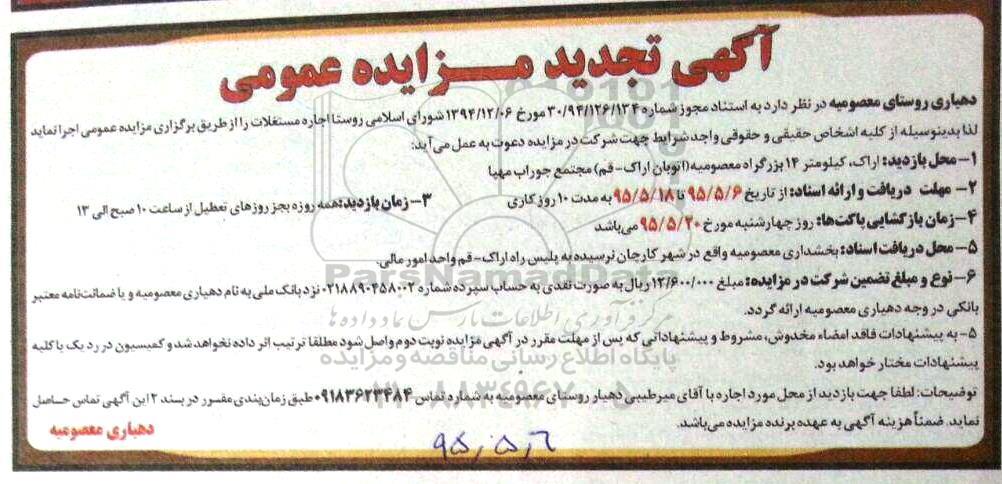 آگهی تجدید مزایده عمومی
دهیاری روستای معصومیه در نظر دارد به استناد مجوز شماره ۳۰/۹۴/۱۲۶/۱۳۴ مورخ ۱۳۹۴/۱۲/۰۶ شورای اسلامی روستا اجاره مستغلات را از طریق برگزاری مزایده عمومی اجرا نماید
لذا بدینوسیله از کلیه اشخاص حقیقی و حقوقی واجد شرایط جهت شرکت در مزایده دعوت به عمل می‌آید:
۱- محل بازدید: اراک، کیلومتر ۱۴ بزرگراه معصومیه (اتوبان اراک - قم) مجتمع جوراب مهیا
۲- مهلت دریافت و ارائه اسناد: از تاریخ ۹۵/۵/۶ تا ۹۵/۵/۱۸ به مدت ۱۰ روز کاری ۳- زمان بازدید: همه روزه بجز روزهای تعطیل از ساعت ۱۰ صبح الی ۱۳
۴- زمان بازگشایی پاکت‌ها: روز چهارشنبه مورخ ۹۵/۵/۲۰ می‌باشد
۵- محل دریافت اسناد: بخشداری معصومیه واقع در شهر کارچان نرسیده به پلیس راه اراک - قم واحد امور مالی.
۶- نوع و مبلغ تضمین شرکت در مزایده: مبلغ ۱۲/۶۰۰/۰۰۰ ریال به صورت نقدی به حساب سپرده شماره ۰۲۱۸۸۹۰۴۵۸۰۰۲ نزد بانک ملی به نام دهیاری معصومیه و یا ضمانت‌نامه معتبر
بانکی در وجه دهیاری معصومیه ارائه گردد.
۵- به پیشنهادات فاقد امضاء مخدوش، مشروط و پیشنهاداتی که پس از مهلت مقرر در آگهی مزایده نوبت دوم واصل شود مطلقا ترتیب اثر داده نخواهد شد و کمیسیون در رد یک یا کلیه
پیشنهادات مختار خواهد بود.
توضیحات: لطفا جهت بازدید از محل مورد اجاره با آقای میرطیبی دهیار روستای معصومیه به شماره تماس ۰۹۱۸۳۶۲۳۴۸۴ طبق زمان‌بندی مقرر در بند ۲ این آگهی تماس حاصل
نماید. ضمناً هزینه آگهی به عهده برنده مزایده می‌باشد.
دهیاری معصومیه
۹۵,۰۵,۶
ParsNamadData
مرکز فرآوری اطلاعات پارس نماد داده ها
پایگاه اطلاع رسانی مناقصه و مزایده